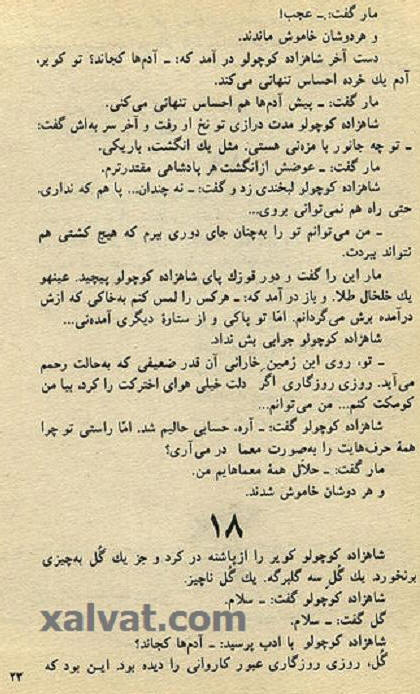 مار گفت: ـ عجب!
و هردوشان خاموش ماندند.
دست آخر شاهزاده کوچولو در آمد که: ـ آدم‌ها کجاند؟ تو کویر،
آدم یك خرده احساس تنهائی می‌کند.
مار گفت: ـ پیش آدم‌ها هم احساس تنهائی می‌کنی.
شاهزاده کوچولو مدت درازی تو نخ او رفت و آخر سر به‌اش گفت:
ـ تو چه جانور با مزه‌ئی هستی. مثل یك انگشت، باریکی.
مار گفت: ـ عوضش ازانگشت هر پادشاهی مقتدرترم.
شاهزاده کوچولو لبخندی زد و گفت: ـ نه چندان... پا هم که نداری.
حتی راه هم نمی‌توانی بروی...
ـ من می‌توانم تو را به‌چنان جای دوری ببرم که هیچ کشتی هم
نتواند ببردت.
مار این را گفت و دور قوزك پای شاهزاده کوچولو پیچید. عینهو
یك خلخال طلا. و باز در آمد که: ـ هرکس را لمس کنم به‌خاکی که ازش
درآمده برش می‌گردانم. امّا تو پاکی و از ستارهٔ دیگری آمده‌ئی...
شاهزاده کوچولو جوابی بش نداد.
ـ تو، روی این زمین خارائی آن قدر ضعیفی که به‌حالت رحمم
می‌آید. روزی روزگاری اگر دلت خیلی هوای اخترکت را کرد، بیا من
کومکت کنم... من می‌توانم...
شاهزاده کوچولو گفت: ـ آره، حسابی حالیم شد. امّا راستی تو چرا
همهٔ حرف‌هایت را به‌صورت معما در می‌آری؟
مار گفت: ـ حلّال همهٔ معماهایم من.
و هر دوشان خاموش شدند.
۱۸
شاهزاده کوچولو کویر را ازپاشنه در کرد و جز یك گُل به‌چیزی
برنخورد. یك گُل سه گلبرگه. یك گُل ناچیز.
شاهزاده کوچولو گفت: ـ سلام.
گل گفت: ـ سلام.
xalvat.com
شاهزاده کوچولو با ادب پرسید: ـ آدم‌ها کجاند؟
گُل، روزی روزگاری عبور کاروانی را دیده بود. این بود که
۲۳